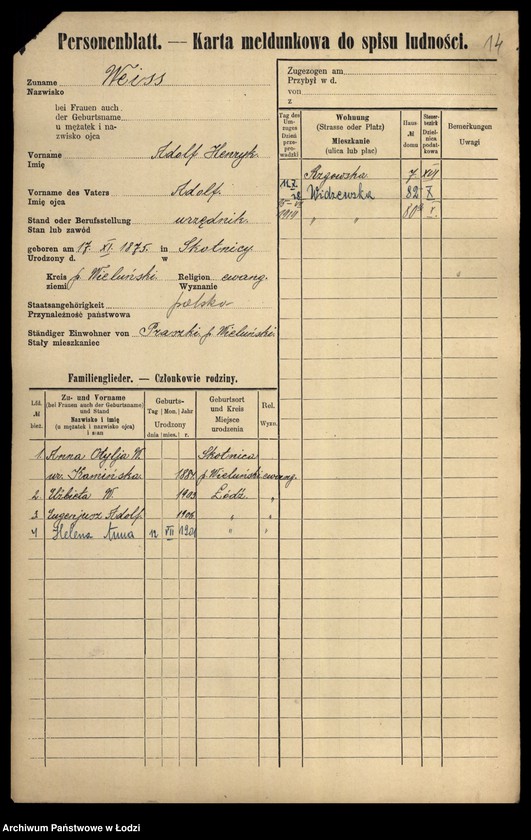 Personenblatt. — Karta meldunkowa do spisu ludności.
14
Zuname Weiss
Nazwisko
bei Frauen auch
der Geburtsname
u mężatek i na-
zwisko ojca
Vorname Adolf Henryk
Imię
Vorname des Vaters Adolf.
Imię ojca
Stand oder Berufsstellung urzędnik.
Stan lub zawód
geboren am 17. XI. 1875. in Skotnicy
Urodzony d. w
Kreis p. Wieluński Religion ewang.
ziemi Wyznanie
Staatsangehörigkeit polska
Przynależność państwowa
Ständiger Einwohner von Praszki p. Wieluński.
Stały mieszkaniec
Zugezogen am
Przybył w d.
von
z
Tag des Um-zuges Dzień prze-prowadzki
Wohnung (Strasse oder Platz) Mieszkanie (ulica lub plac)
Haus- № domu
Steuer-bezirk Dzielnica podatkowa
Bemerkungen Uwagi
Rzgowska 7 XIII
Widzewska 82 X
1919 " " 80 X.
Familienglieder. — Członkowie rodziny.
Lfd. № bież.
Zu- und Vorname (bei Frauen auch der Geburtsname) und Stand Nazwisko i imię (u mężatek i nazwisko ojca) i stan
Geburts- Tag Mon. Jahr Urodzony dnia mies. r.
Geburtsort und Kreis Miejsce urodzenia
Rel. Wyzn.
1 Anna Otylja W. Skotnica
ur. Kamińska 1884 p. Wieluński ewang.
2 Elżbieta W. 1903 Łódź. "
3 Eugenjusz Adolf. 1906 " "
4 Helena Anna 12 VII " "
Archiwum Państwowe w Łodzi